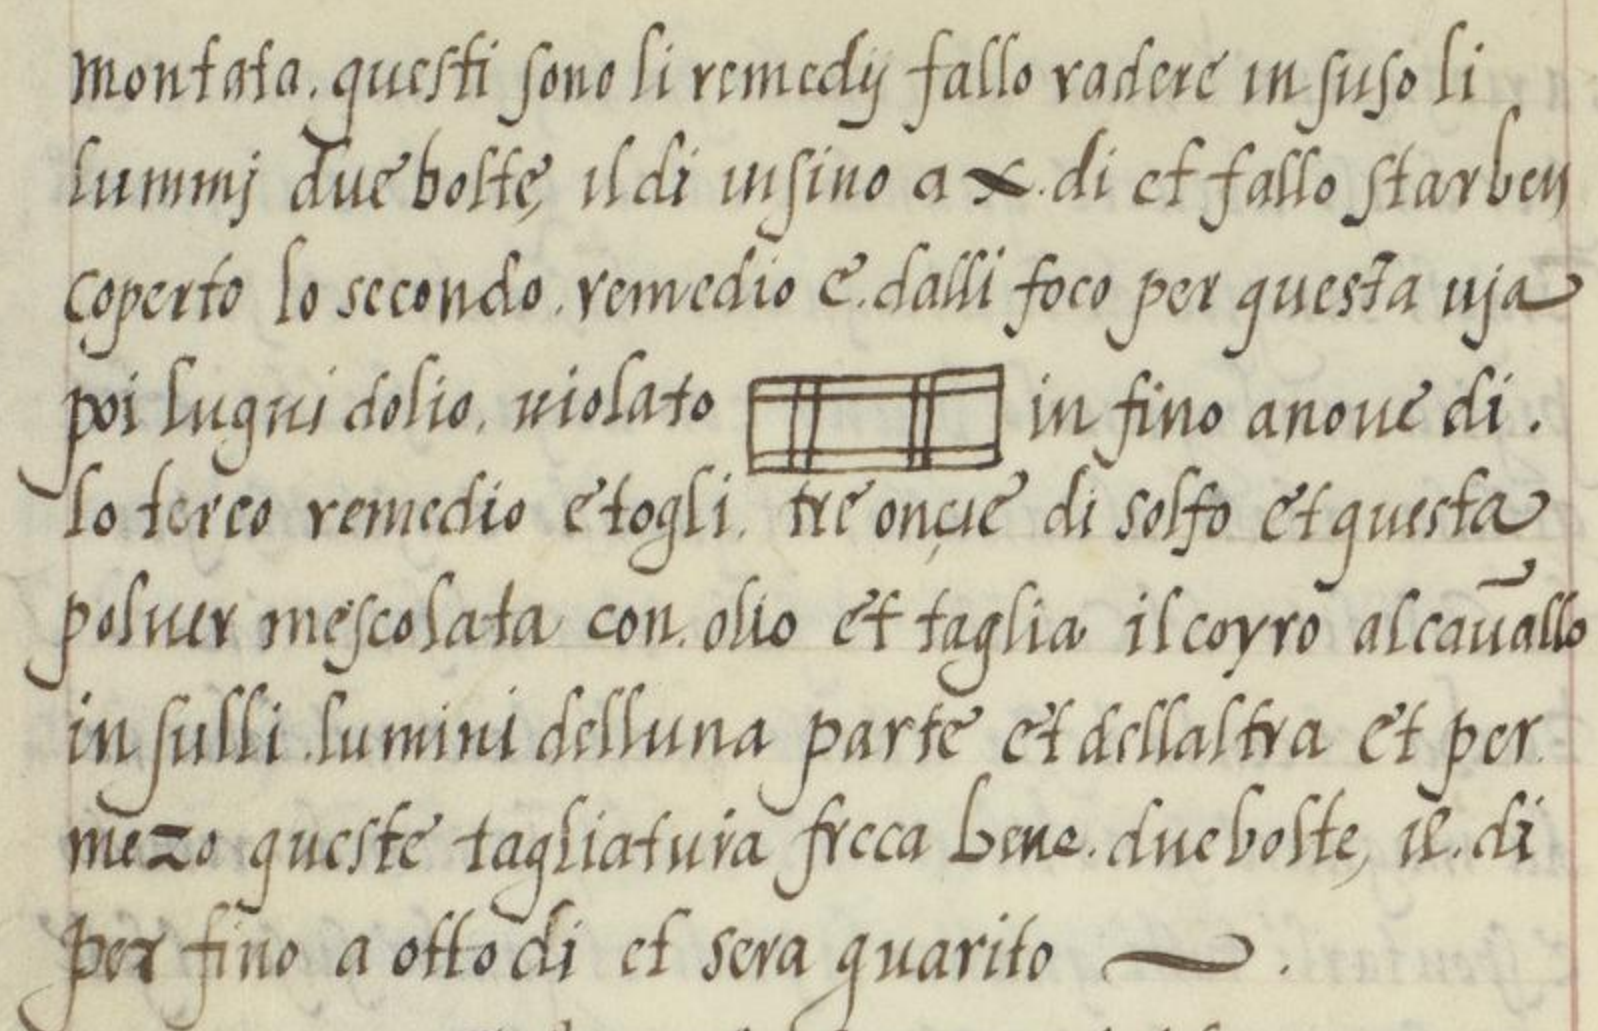 montata. questi sono li remedij fallo radere in suso li
lummj due bolte, il di insino a x. di et fallo star ben
coperto lo secondo. remedio e. dalli foco per questa uja
poi lugni dolio. uiolato in fino a noue di.
lo terco remedio e togli. tre onçie di solfo et questa
poluer mescolata con. olio et taglia il coyro al cauallo
in sulli. lumini delluna parte et dellaltra et per
mezo queste tagliatura freca bene. due bolte, il. di
per fino a otto di et sera guarito.